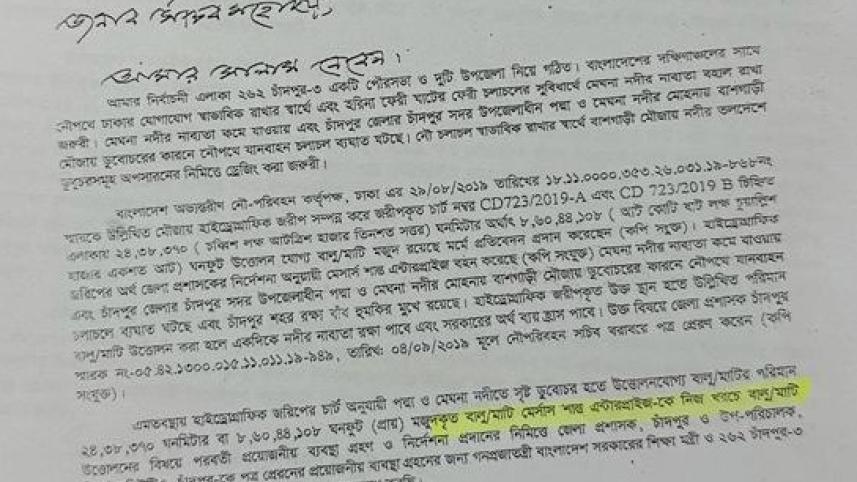 জনাব সচিব মহোদয়,
আমার সালাম নেবেন।
আমার নির্বাচনী এলাকা ২৬২ চাঁদপুর-৩ একটি পৌরসভা ও দুটি উপজেলা নিয়ে গঠিত। বাংলাদেশের দক্ষিণাঞ্চলের সাথে
নৌপথে ঢাকার যোগাযোগ স্বাভাবিক রাখার স্বার্থে এবং হরিনা ফেরী ঘাটের ফেরী চলাচলের সুবিধার্থে মেঘনা নদীর নাব্যতা বহাল রাখা
জরুরী। মেঘনা নদীর নাব্যতা কমে যাওয়ায় এবং চাঁদপুর জেলার চাঁদপুর সদর উপজেলাধীন পদ্মা ও মেঘনা নদীর মোহনায় বাশগাড়ী
মৌজায় ডুবোচরের কারনে নৌপথে যানবাহন চলাচল ব্যাঘাত ঘটছে। নৌ চলাচল স্বাভাবিক রাখার স্বার্থে বাশগাড়ী মৌজায় নদীর তলদেশে
ডুবোচরসমূহ অপসারনের নিমিত্তে ড্রেজিং করা জরুরী।
বাংলাদেশ অভ্যন্তরীণ নৌ-পরিবহন কর্তৃপক্ষ, ঢাকা এর ২৯/০৮/২০১৯ তারিখের ১৮.১১.০০০০.৩৫৩.২৬.০৩১.১৯-৮৬৮নং
স্মারকে উল্লিখিত মৌজায় হাইড্রোগ্রাফিক জরীপ সম্পন্ন করে জরীপকৃত চার্ট নম্বর CD723/2019-A এবং CD 723/2019 B চিহ্নিত
এলাকায় ২৪,৩৮,৩৭০ ( চব্বিশ লক্ষ আটত্রিশ হাজার তিনশত সত্তর) ঘনমিটার অর্থাৎ ৮,৬০,৪৪,১০৮ ( আট কোটি ষাট লক্ষ চুয়াল্লিশ
হাজার একশত আট) ঘনফুট উত্তোলন যোগ্য বালু/মাটি মজুদ রয়েছে মর্মে প্রতিবেদন প্রদান করেছেন (কপি সংযুক্ত)। হাইড্রোগ্রাফিক
জরিপের অর্থ জেলা প্রশাসকের নির্দেশনা অনুযায়ী মেসার্স শান্ত এন্টারপ্রাইজ বহন করেছে (কপি সংযুক্ত) মেঘনা নদীর নাব্যতা কমে যাওয়ায়
এবং চাঁদপুর জেলার চাঁদপুর সদর উপজেলাধীন পদ্মা ও মেঘনা নদীর মোহনায় বাশগাড়ী মৌজায় ডুবোচরের কারনে নৌপথে যানবাহন
চলাচলে ব্যাঘাত ঘটছে এবং চাঁদপুর শহর রক্ষা বাঁধ হুমকির মুখে রয়েছে। হাইড্রোগ্রাফিক জরীপকৃত উক্ত স্থান হতে উল্লিখিত পরিমান
বালু/মাটি উত্তোলন করা হলে একদিকে নদীর নাব্যতা রক্ষা পাবে এবং সরকারের অর্থ ব্যয় হ্রাস পাবে। উক্ত বিষয়ে জেলা প্রশাসক চাঁদপুর
স্মারক নং-০৫.৪২.১৩০০.০১৫.১১.০১১.১৯-৯৪৯, তারিখঃ ০৪/০৯/২০১৯ মূলে নৌপরিবহন সচিব বরাবরে পত্র প্রেরণ করেন (কপি
সংযুক্ত)।
এমতবস্থায় হাইড্রোগ্রাফিক জরিপের চার্ট অনুযায়ী পদ্মা ও মেঘনা নদীতে সৃষ্ট ডুবোচর হতে উত্তোলনযোগ্য বালু/মাটির পরিমান
২৪,৩৮,৩৭০ ঘনমিটার বা ৮,৬০,৪৪,১০৮ ঘনফুট (প্রায়) মজুদকৃত বালু/মাটি মেসার্স শান্ত এন্টারপ্রাইজ-কে নিজ খরচে বালু/মাটি
উত্তোলনের বিষয়ে পরবর্তী প্রয়োজনীয় ব্যবস্থা গ্রহণ ও নির্দেশনা প্রদানের নিমিত্তে জেলা প্রশাসক, চাঁদপুর ও উপ-পরিচালক,
চাঁদপুর-কে পত্র প্রেরনের প্রয়োজনীয় ব্যবস্থা গ্রহনের জন্য গনপ্রজাতন্ত্রী বাংলাদেশ সরকারের শিক্ষা মন্ত্রী ও ২৬২ চাঁদপুর-৩